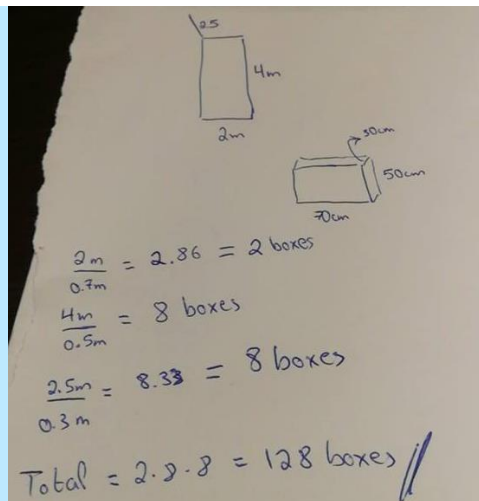 25
4m
2m
30cm
50cm
70cm
2m/0.7m = 2.86 = 2 boxes
4m/0.5m = 8 boxes
2.5m/0.3m = 8.33 = 8 boxes
Total = 2.8.8 = 128 boxes